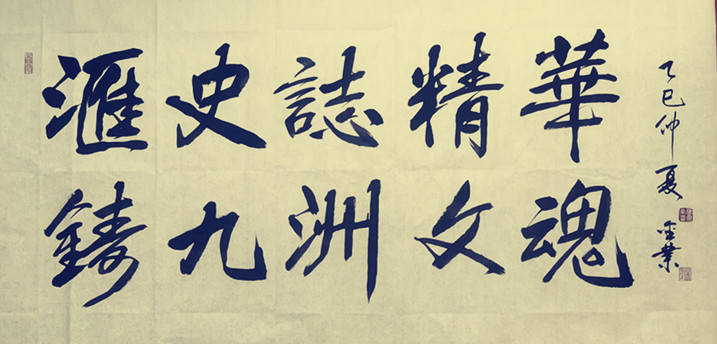 滙史誌精華
鑄九洲文魂
乙巳仲夏 金業